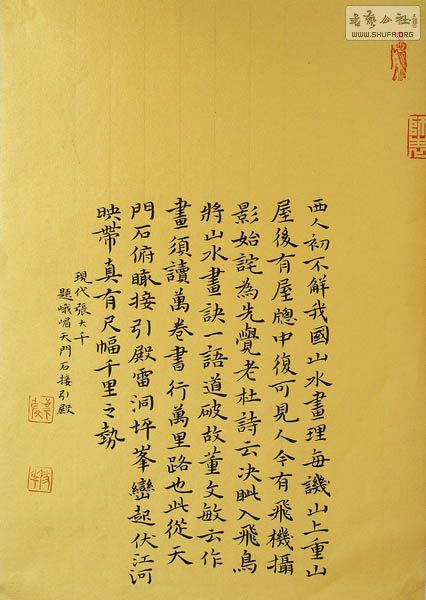 書藝公社
WWW.SHUFA.ORG
西人初不解我國山水畫理每譏山上重山
屋後有屋牕中復可見人今有飛機攝
影始詫為先覺老杜詩云決眦入飛鳥
將山水畫訣一語道破故董文敏云作
畫須讀萬卷書行萬里路也此從天
門石俯瞰接引殿雷洞坪峯巒起伏江河
映帶真有尺幅千里之勢
現代張大千
題峨嵋天門石接引殿